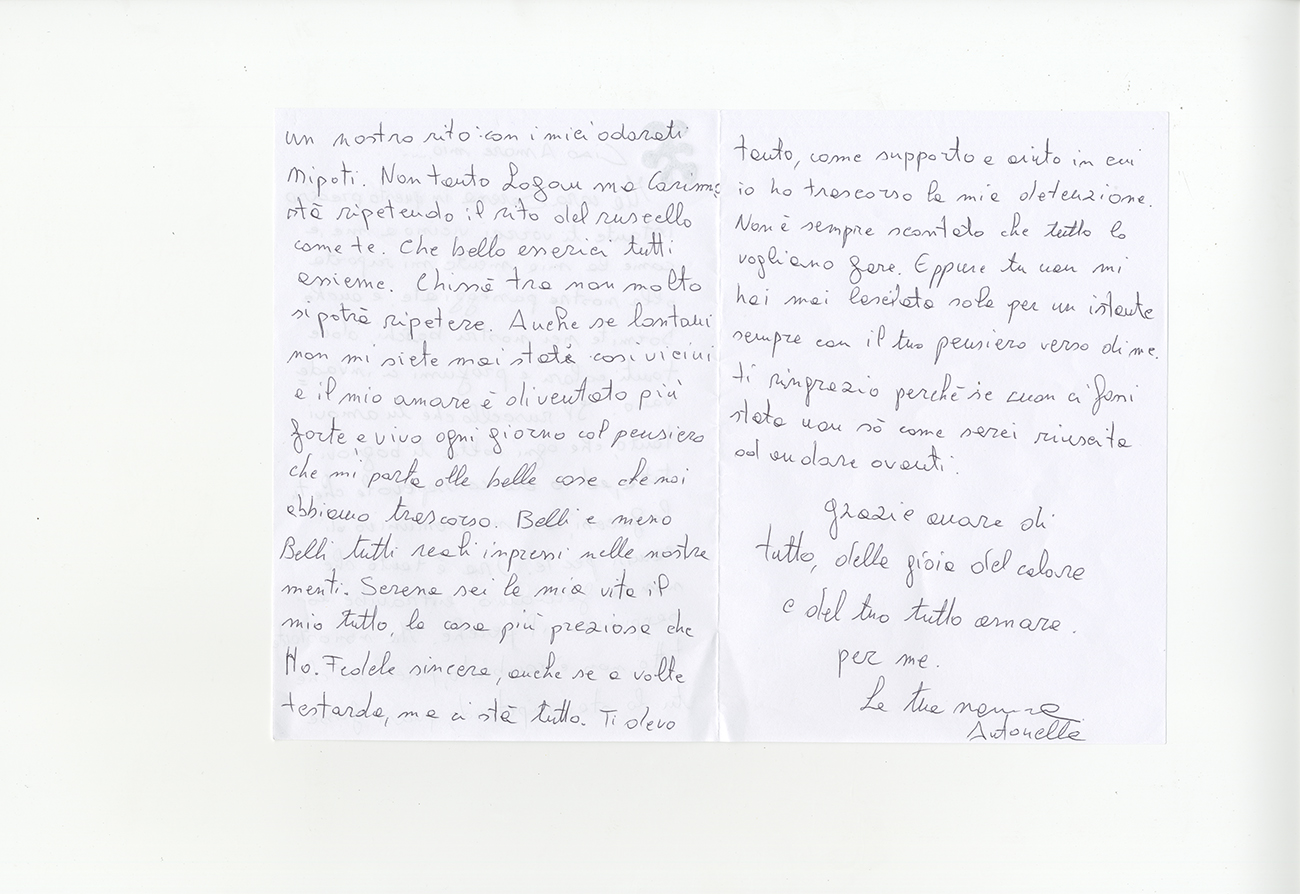 un nostro rito con i miei adorati
Nipoti. Non tanto Logan ma Carime
stà ripetendo il rito del ruscello
come te. Che bello esserici tutti
assieme. Chissà tra non molto
si potrà ripetere. Anche se lontani
non mi siete mai stata così vicini
e il mio amare è diventato più
forte e vivo ogni giorno col pensiero
che mi porta alle belle cose che noi
abbiamo trascorso. Belli e meno
Belli tutti reali impressi nelle nostre
menti. Serena sei la mia vita il
mio tutto, la cosa più preziosa che
Ho. Fedele sincera, anche se a volte
testarda, ma ci stà tutto. Ti devo
tanto, come supporto e aiuto in cui
io ho trascorso la mia detenzione.
Non è sempre scontato che tutto lo
vogliano fare. Eppure tu non mi
hai mai lasciata sola per un istante
sempre con il tuo pensiero verso di me.
ti ringrazio perchè se non ci fossi
stata non sò come serei riuscita
ad andare avanti.
grazie amare di
tutto, della gioia del calore
e del tuo tutto amare.
per me.
La tua
Antonella